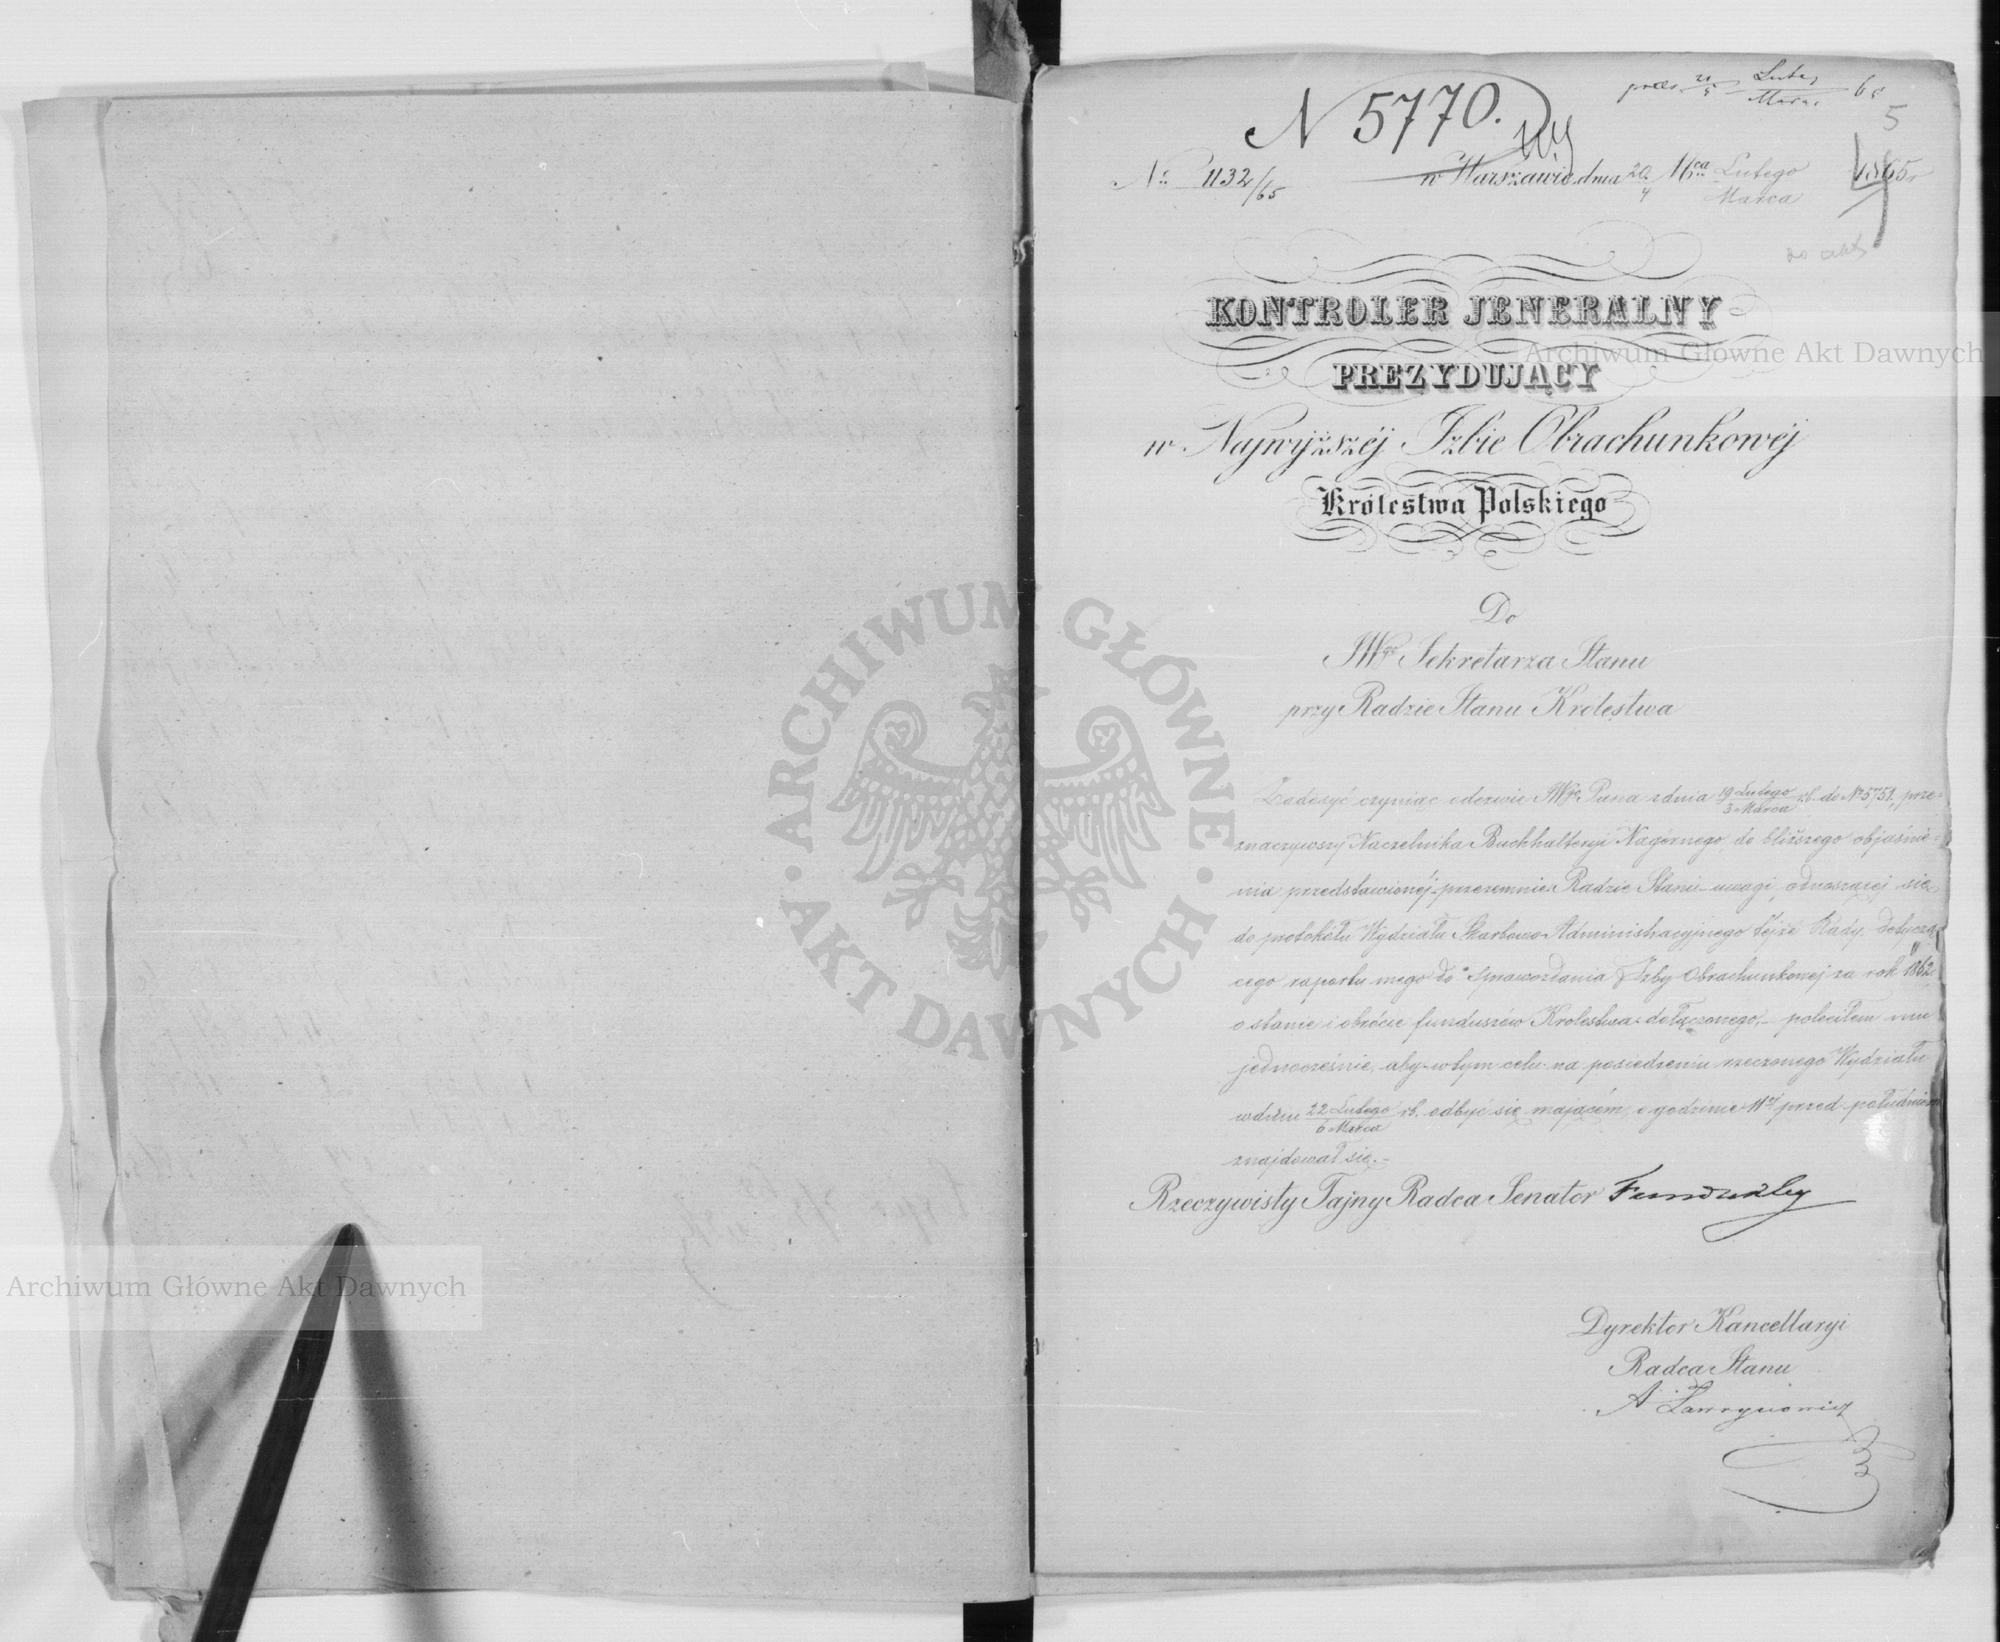 N 5770.
prez. 21/5 Luteg/Marca 65
5
No 1132/65
w Warszawie dnia 20/4 Mca Lutego/Marca 1865 r
do akt
KONTROLER JENERALNY
PREZYDUJĄCY
w Najwyższéj Izbie Obrachunkowéj
Królestwa Polskiego
Do
JWgo Sekretarza Stanu
przy Radzie Stanu Królestwa
Zadosyć czyniąc odezwie JWgo Pana z dnia 19 Lutego/3 Marca r.b. do No 5751, prze-
znaczywszy Naczelnika Buchhalteryi Nagórnego, do bliższego objaśnie-
nia przedstawionéj przezemnie Radzie Stanu uwagi, odnoszącej się
do protokółu Wydziału Skarbowo-Administracyjnego tejże Rady, dotyczą-
cego raportu mego do sprawozdania Izby Obrachunkowej za rok 1862
o stanie i obrócie funduszów Królestwa dołączonego, – poleciłem mu
jednocześnie, aby w tym celu na posiedzeniu rzeczonego Wydziału
w dniu 22 Lutego/6 Marca r.b. odbyć się mającém, o godzinie 11ej przed południem
znajdował się.–
Rzeczywisty Tajny Radca Senator Funduкley
Dyrektor Kancellaryi
Radca Stanu
A Ławrynowicz
ARCHIWUM GŁÓWNE AKT DAWNYCH
Archiwum Główne Akt Dawnych
Archiwum Główne Akt Dawnych